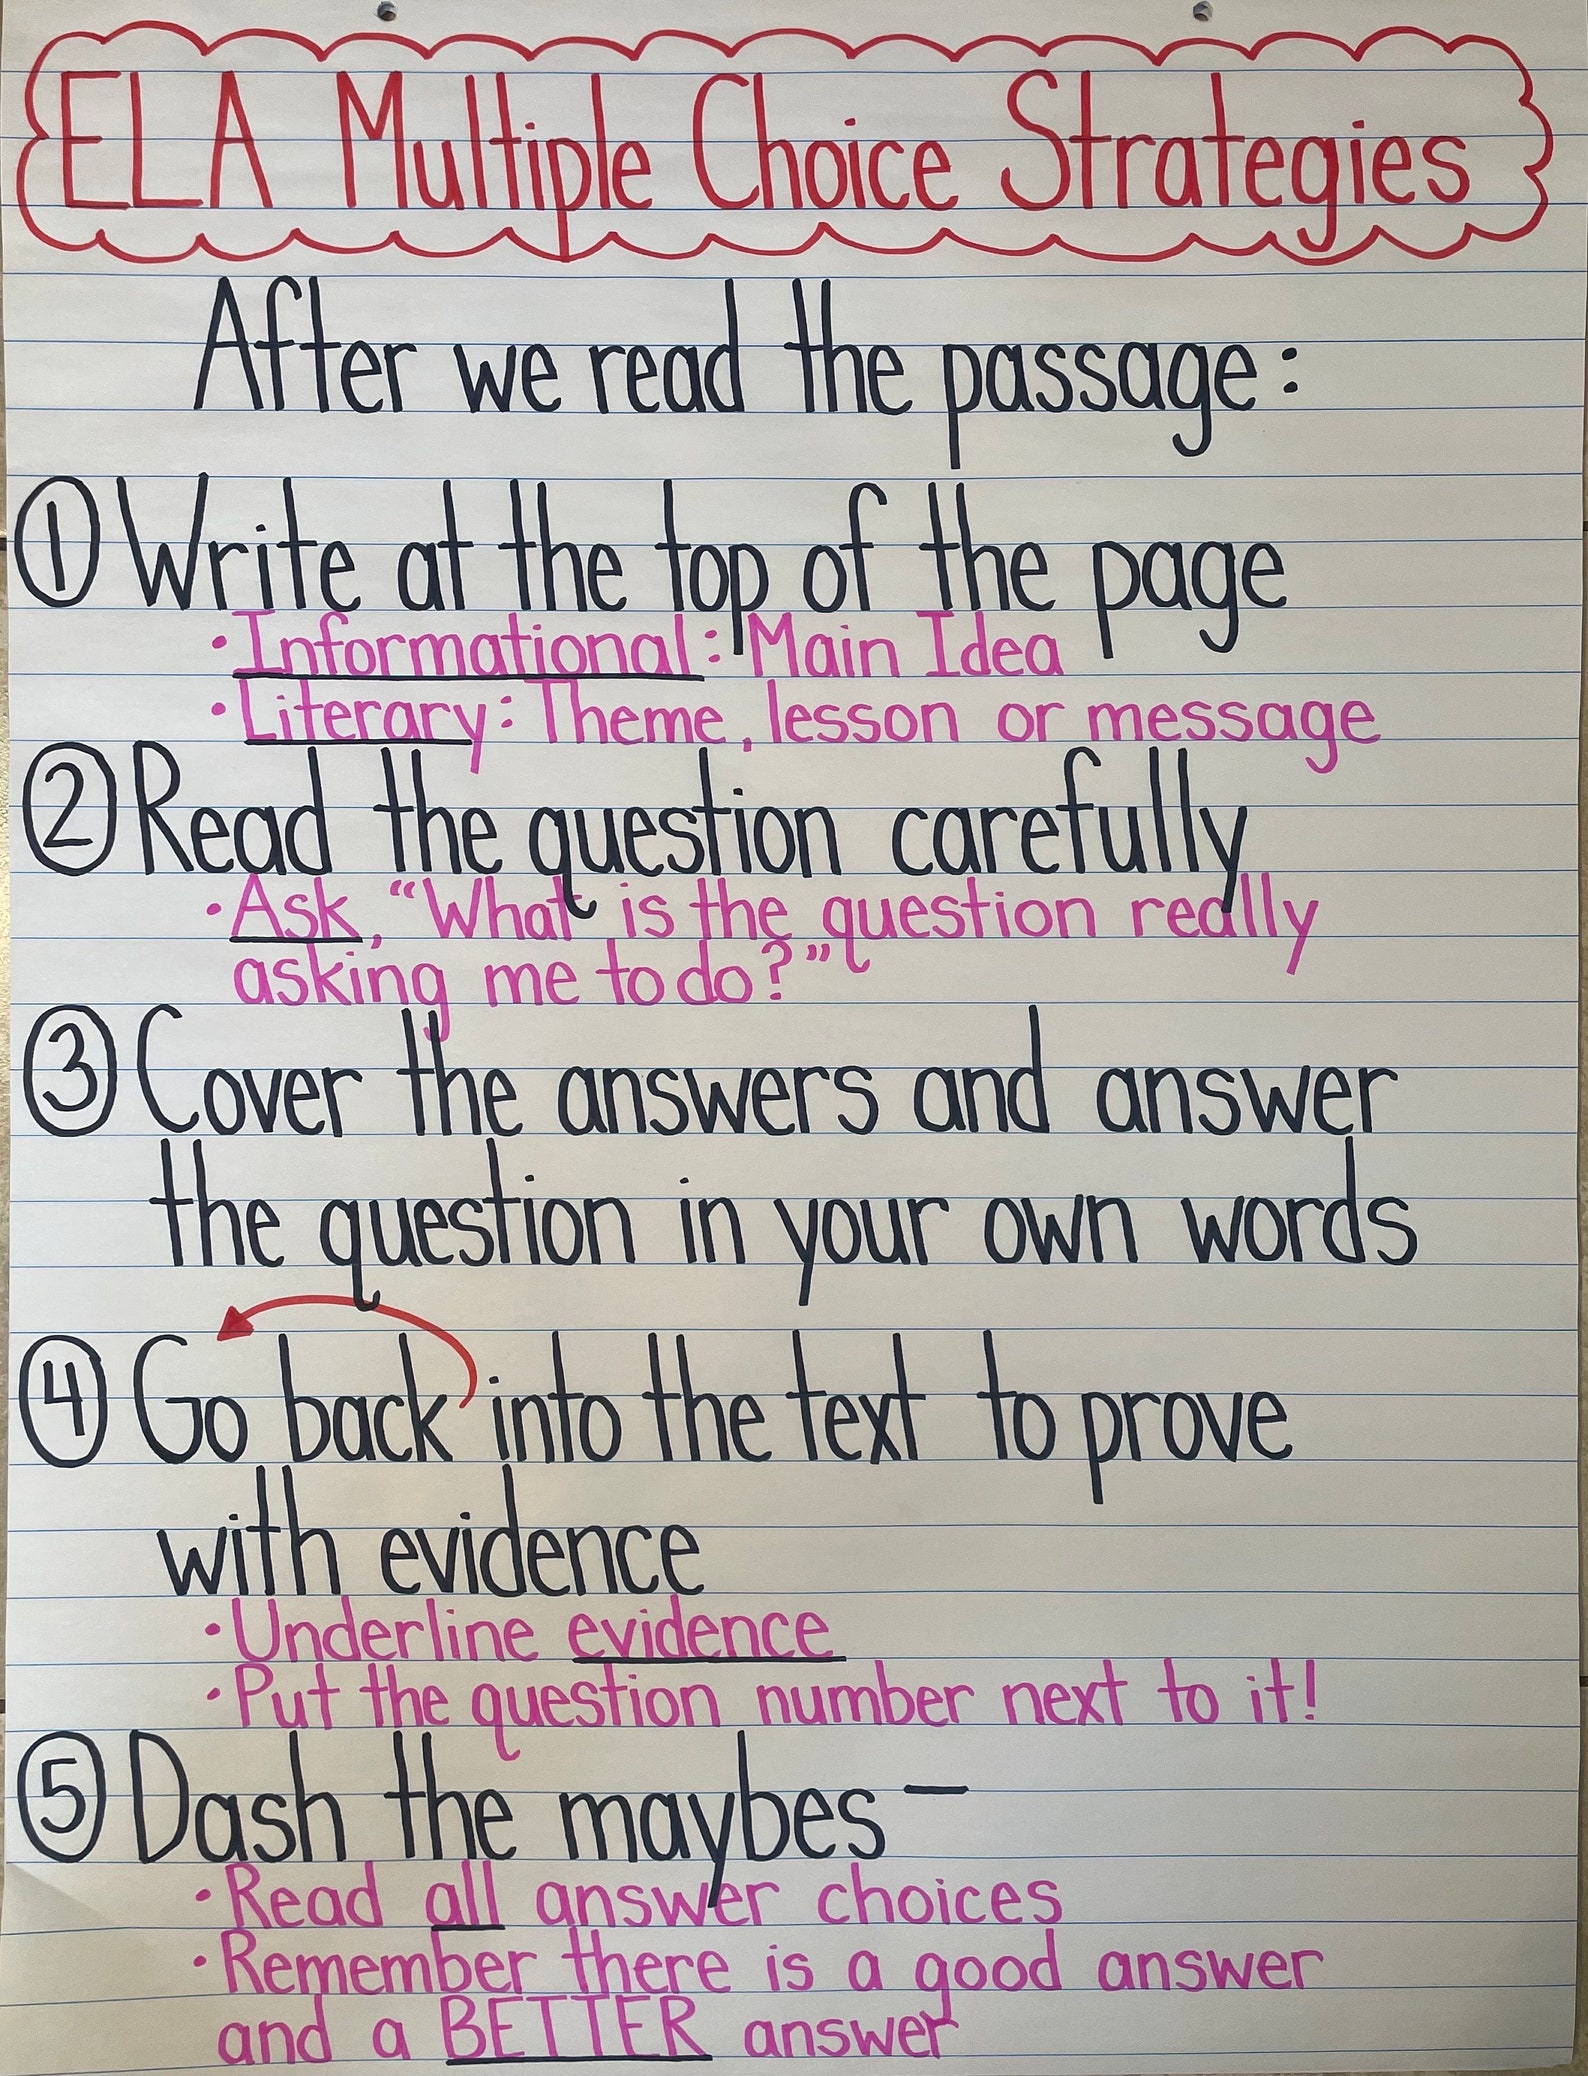 ELA Multiple Choice Strategies
After we read the passage:
① Write at the top of the page
• Informational: Main Idea
• Literary: Theme, lesson or message
② Read the question carefully
• Ask, “What is the question really
asking me to do?”
③ Cover the answers and answer
the question in your own words
④ Go back into the text to prove
with evidence
• Underline evidence
• Put the question number next to it!
⑤ Dash the maybes –
• Read all answer choices
• Remember there is a good answer
and a BETTER answer